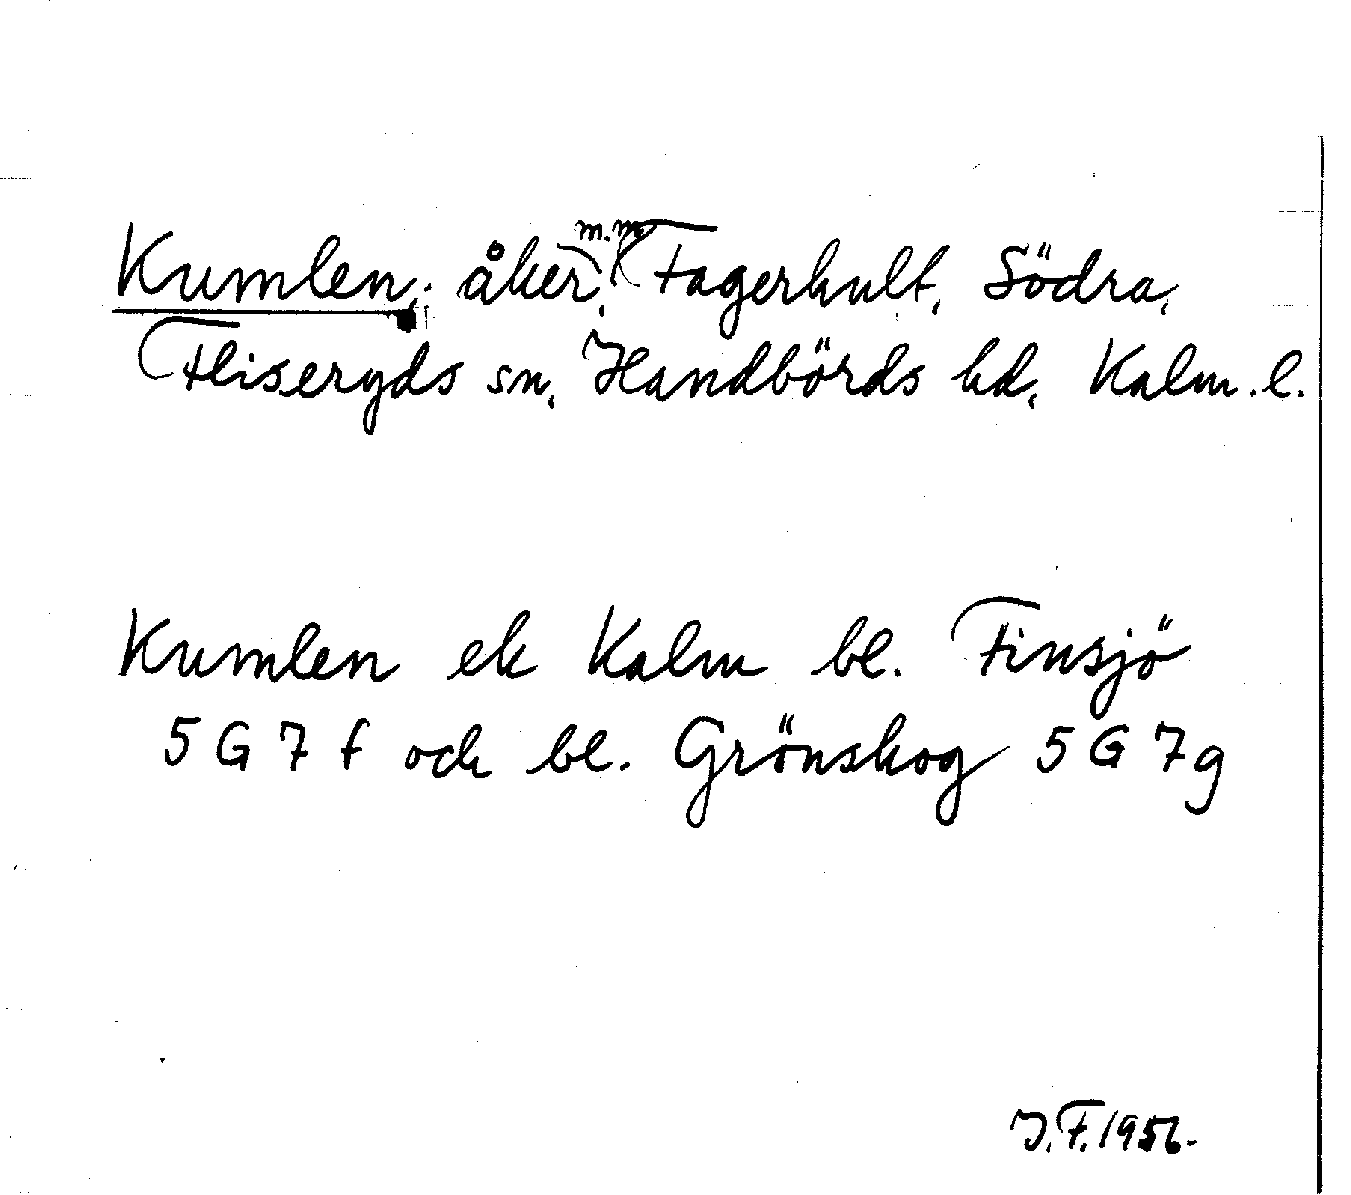 Kumlen, åker m.m., Fagerhult, Södra,
Fliseryds sn, Handbörds hd, Kalm. l.
Kumlen ek Kalm bl. Finsjö
5 G 7 f och bl. Grönskog 5 G 7g
J.F. 1956.